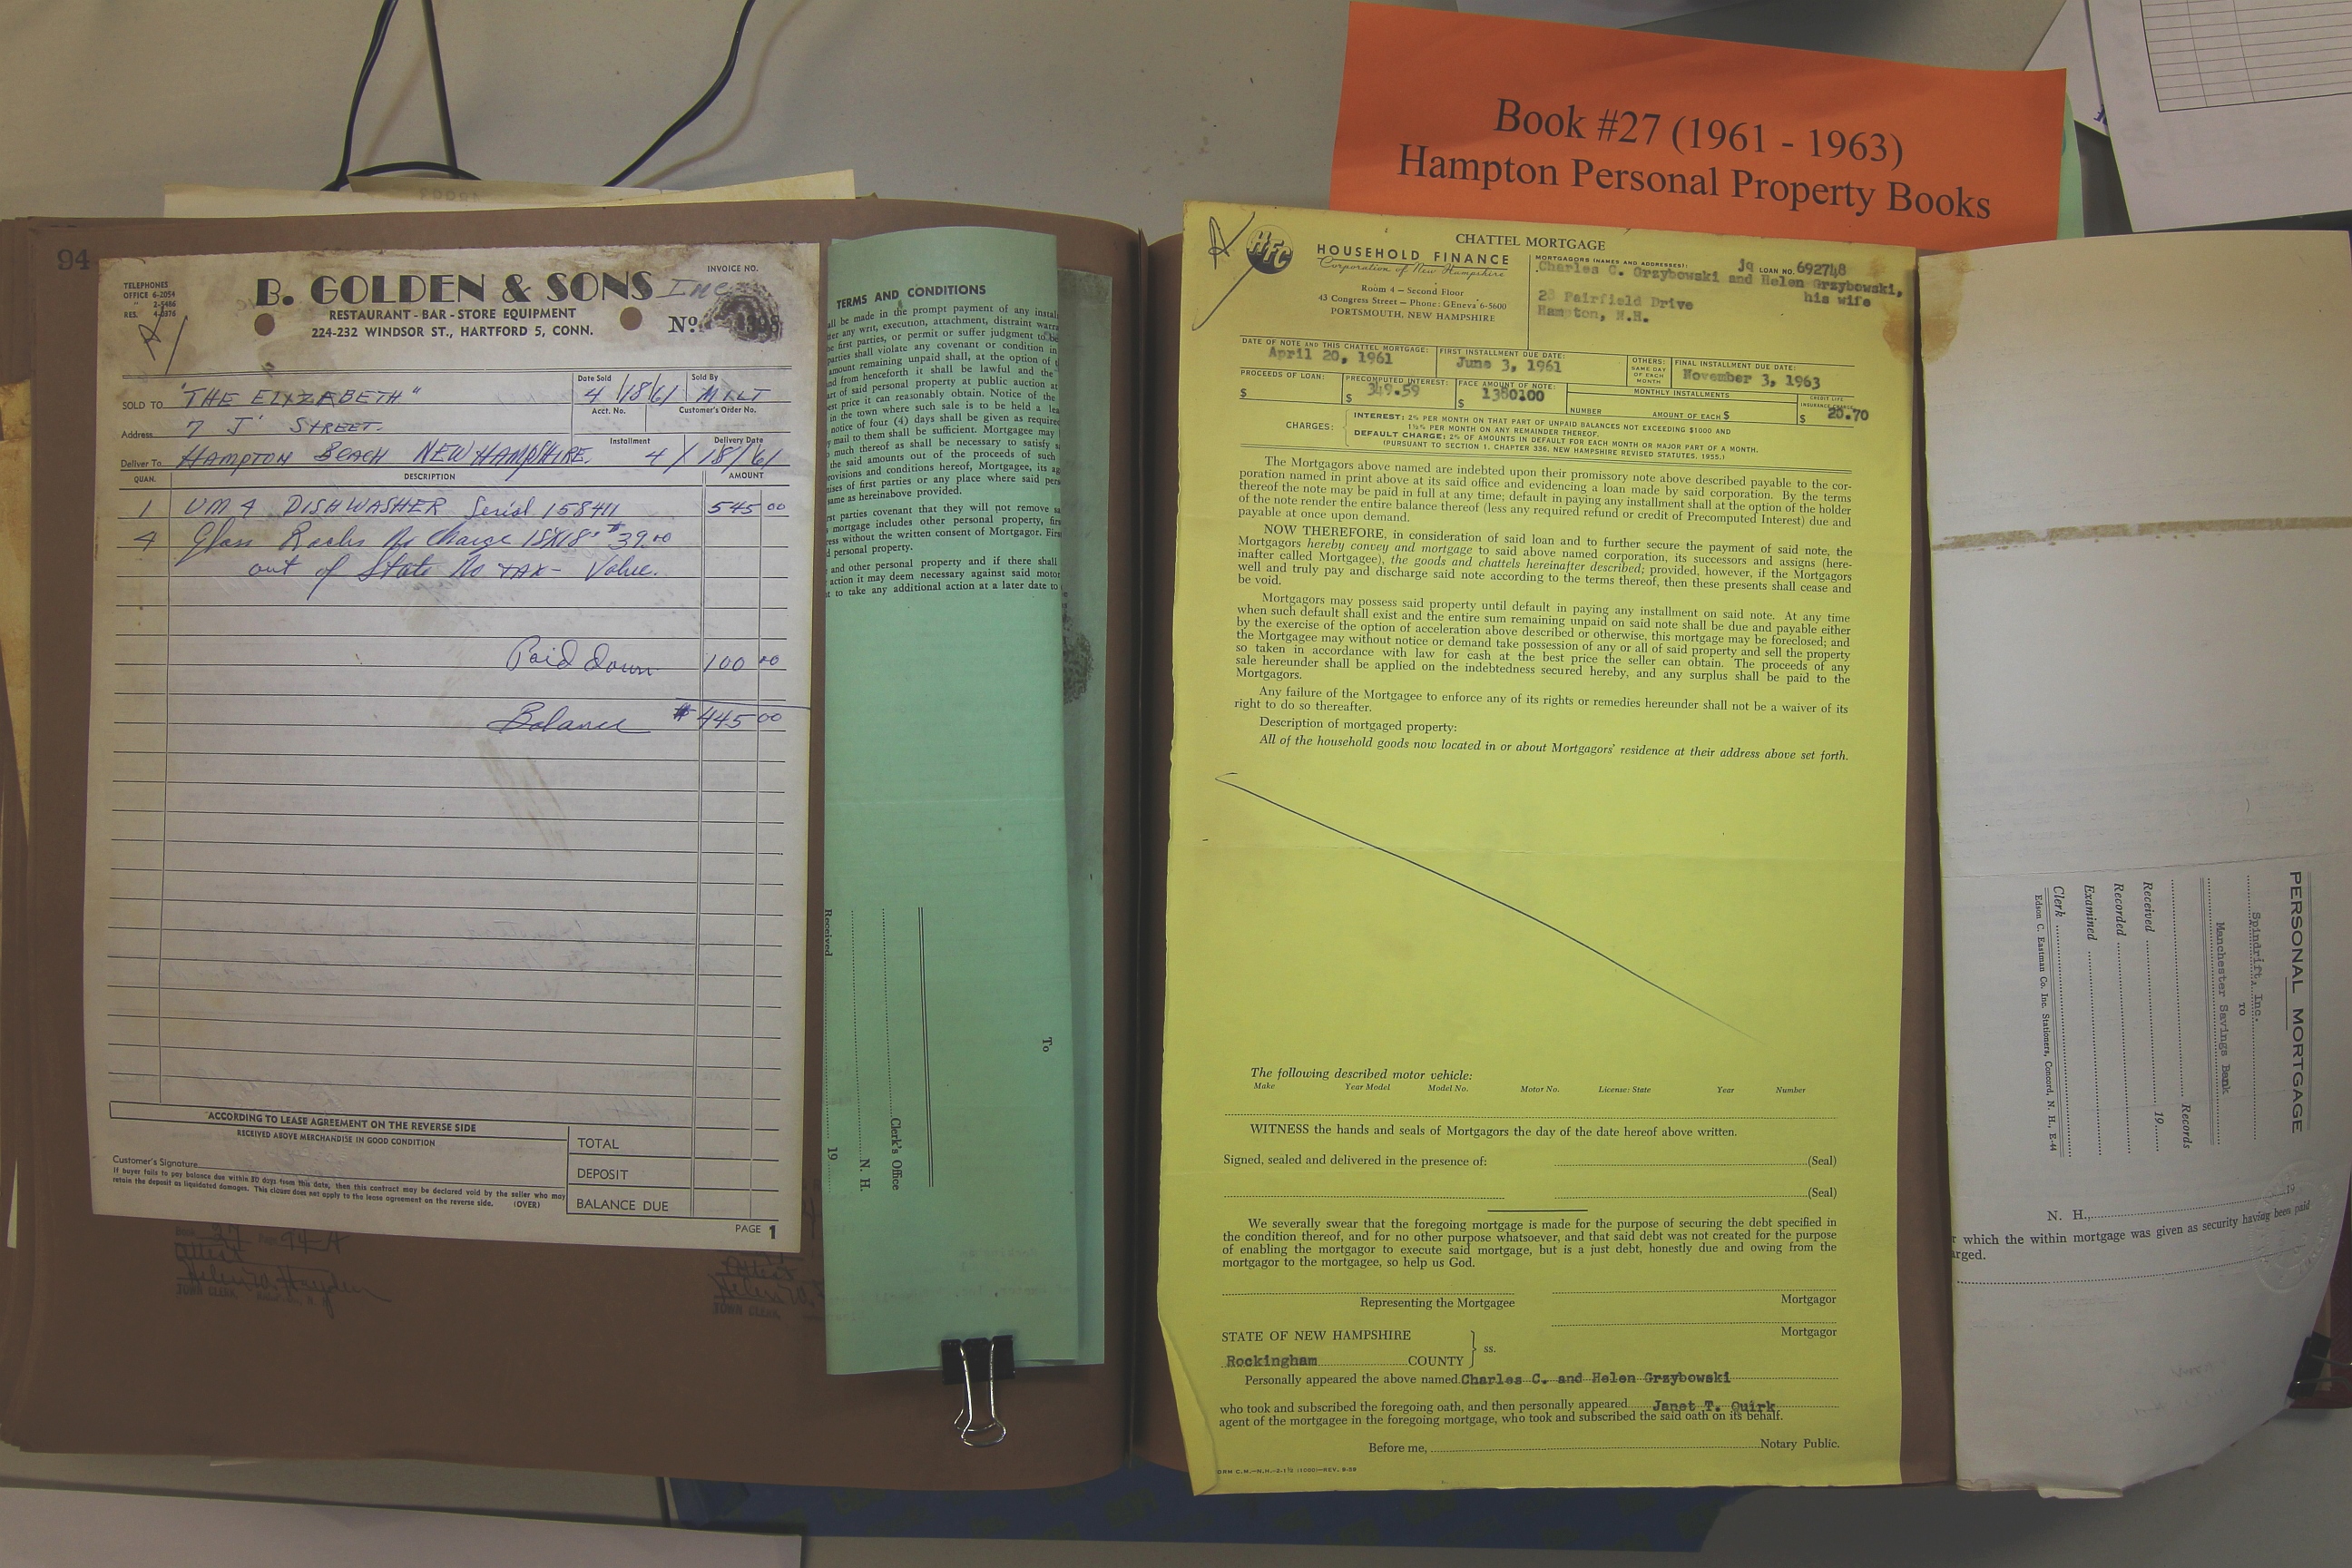 Book #27 (1961 - 1963)
Hampton Personal Property Books
94
TELEPHONES
OFFICE 6-2054
" 2-5486
RES. 4-0376
B. GOLDEN & SONS Inc
RESTAURANT - BAR - STORE EQUIPMENT
224-232 WINDSOR ST., HARTFORD 5, CONN.
INVOICE NO.
No.
Date Sold 4/18/61 Sold By MILT
SOLD TO "THE ELIZABETH"
Acct. No. Customer's Order No.
Address 7 J STREET.
Installment Delivery Date
Deliver To HAMPTON BEACH NEW HAMPSHIRE. 4/18/61
QUAN. DESCRIPTION AMOUNT
1 UM 4 DISHWASHER Serial 158411 545 00
4 Glass Racks No Charge 18X18" $39.00
out of State No TAX - Value.
Paid down 100 00
Balance $445 00
ACCORDING TO LEASE AGREEMENT ON THE REVERSE SIDE
RECEIVED ABOVE MERCHANDISE IN GOOD CONDITION
Customer's Signature
If buyer fails to pay balance due within 30 days from this date, then this contract may be declared void by the seller who may
retain the deposit as liquidated damages. This clause does not apply to the lease agreement on the reverse side. (OVER)
TOTAL
DEPOSIT
BALANCE DUE
PAGE 1
27 94-A
Attest
Helen W. Hayden
TOWN CLERK
Helen W.
TOWN CLERK
TERMS AND CONDITIONS
all be made in the prompt payment of any instal
er any writ, execution, attachment, distraint warra
e first parties, or permit or suffer judgment to be
parties shall violate any covenant or condition in
amount remaining unpaid shall, at the option of t
nd from henceforth it shall be lawful and the
art of said personal property at public auction at
est price it can reasonably obtain. Notice of the
in the town where such sale is to be held a lea
notice of four (4) days shall be given as required
y mail to them shall be sufficient. Mortgagee may
much thereof as shall be necessary to satisfy s
the said amounts out of the proceeds of such
ovisions and conditions hereof, Mortgagee, its ag
nises of first parties or any place where said pers
same as hereinabove provided.
st parties covenant that they will not remove sa
mortgage includes other personal property, firs
ress without the written consent of Mortgagor. Firs
d personal property.
and other personal property and if there shall
action it may deem necessary against said motor
t to take any additional action at a later date to
To
Clerk's Office
N. H.
Received 19
CHATTEL MORTGAGE
HFC
HOUSEHOLD FINANCE
Corporation of New Hampshire
Room 4 — Second Floor
43 Congress Street — Phone: GEneva 6-5600
PORTSMOUTH, NEW HAMPSHIRE
MORTGAGORS (NAMES AND ADDRESSES): jq LOAN NO. 692748
Charles C. Grzybowski and Helen Grzybowski,
his wife
23 Fairfield Drive
Hampton, N.H.
DATE OF NOTE AND THIS CHATTEL MORTGAGE: April 20, 1961
FIRST INSTALLMENT DUE DATE: June 3, 1961
OTHERS: SAME DAY OF EACH MONTH
FINAL INSTALLMENT DUE DATE: November 3, 1963
PROCEEDS OF LOAN: $
PRECOMPUTED INTEREST: $ 349.59
FACE AMOUNT OF NOTE: $
MONTHLY INSTALLMENTS
NUMBER AMOUNT OF EACH $
CREDIT LIFE INSURANCE CHARGE $ 20.70
CHARGES:
INTEREST: 2% PER MONTH ON THAT PART OF UNPAID BALANCES NOT EXCEEDING $1000 AND
1½% PER MONTH ON ANY REMAINDER THEREOF.
DEFAULT CHARGE: 2% OF AMOUNTS IN DEFAULT FOR EACH MONTH OR MAJOR PART OF A MONTH.
(PURSUANT TO SECTION 1, CHAPTER 336, NEW HAMPSHIRE REVISED STATUTES, 1955.)
The Mortgagors above named are indebted upon their promissory note above described payable to the cor-
poration named in print above at its said office and evidencing a loan made by said corporation. By the terms
thereof the note may be paid in full at any time; default in paying any installment shall at the option of the holder
of the note render the entire balance thereof (less any required refund or credit of Precomputed Interest) due and
payable at once upon demand.
NOW THEREFORE, in consideration of said loan and to further secure the payment of said note, the
Mortgagors hereby convey and mortgage to said above named corporation, its successors and assigns (here-
inafter called Mortgagee), the goods and chattels hereinafter described; provided, however, if the Mortgagors
well and truly pay and discharge said note according to the terms thereof, then these presents shall cease and
be void.
Mortgagors may possess said property until default in paying any installment on said note. At any time
when such default shall exist and the entire sum remaining unpaid on said note shall be due and payable either
by the exercise of the option of acceleration above described or otherwise, this mortgage may be foreclosed; and
the Mortgagee may without notice or demand take possession of any or all of said property and sell the property
so taken in accordance with law for cash at the best price the seller can obtain. The proceeds of any
sale hereunder shall be applied on the indebtedness secured hereby, and any surplus shall be paid to the
Mortgagors.
Any failure of the Mortgagee to enforce any of its rights or remedies hereunder shall not be a waiver of its
right to do so thereafter.
Description of mortgaged property:
All of the household goods now located in or about Mortgagors' residence at their address above set forth.
The following described motor vehicle:
Make Year Model Model No. Motor No. License: State Year Number
WITNESS the hands and seals of Mortgagors the day of the date hereof above written.
Signed, sealed and delivered in the presence of: (Seal)
(Seal)
We severally swear that the foregoing mortgage is made for the purpose of securing the debt specified in
the condition thereof, and for no other purpose whatsoever, and that said debt was not created for the purpose
of enabling the mortgagor to execute said mortgage, but is a just debt, honestly due and owing from the
mortgagor to the mortgagee, so help us God.
Representing the Mortgagee Mortgagor
Mortgagor
STATE OF NEW HAMPSHIRE
Rockingham COUNTY ss.
Personally appeared the above named Charles C. and Helen Grzybowski
who took and subscribed the foregoing oath, and then personally appeared Janet T. Quirk
agent of the mortgagee in the foregoing mortgage, who took and subscribed the said oath on its behalf.
Before me, Notary Public.
PERSONAL MORTGAGE
Spindrift, Inc.
TO
Manchester Savings Bank
Records
Received 19
Recorded
Examined
Clerk
Edson C. Eastman Co. Inc. Stationers, Concord, N. H., E-44
19
N. H.,
r which the within mortgage was given as security having been paid
arged.